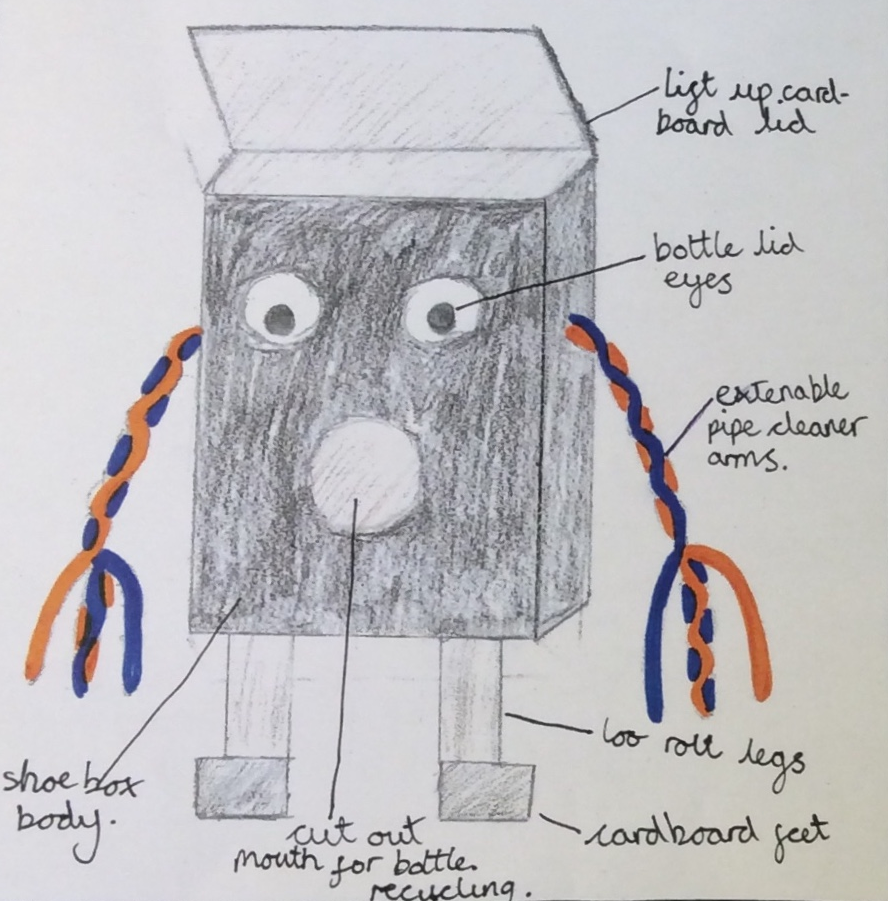 lift up card-
board lid
bottle lid
eyes
extenable
pipe cleaner
arms.
loo roll legs
shoe box
body.
cut out
mouth for bottle.
recycling.
cardboard feet